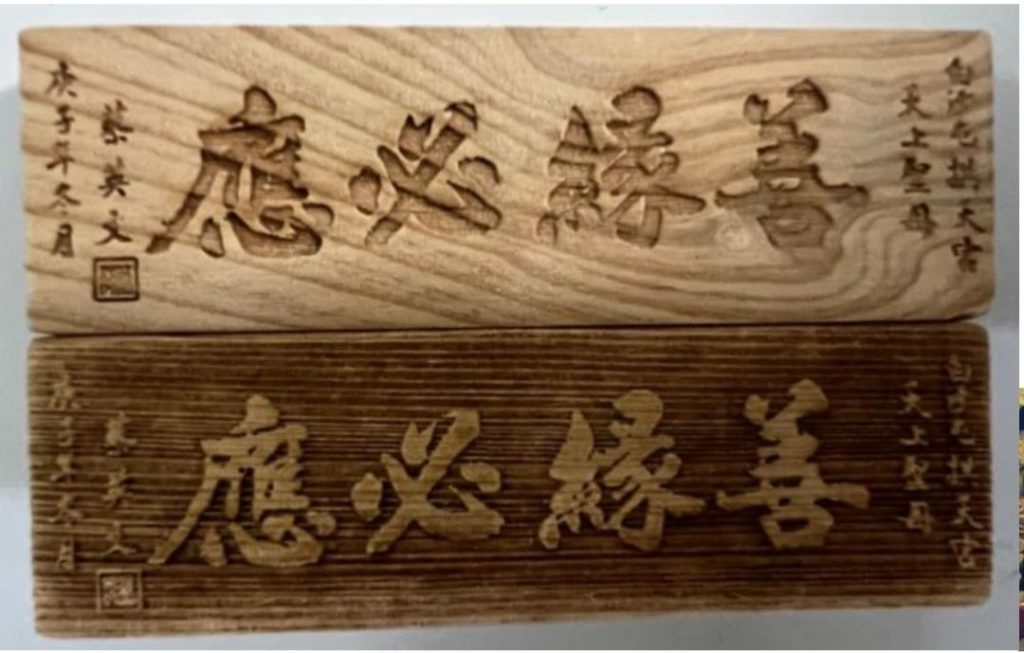 白沙屯拱天宮
天上聖母
善緣必應
蔡英文
庚子年冬月
白沙屯拱天宮
天上聖母
善緣必應
蔡英文
庚子年冬月